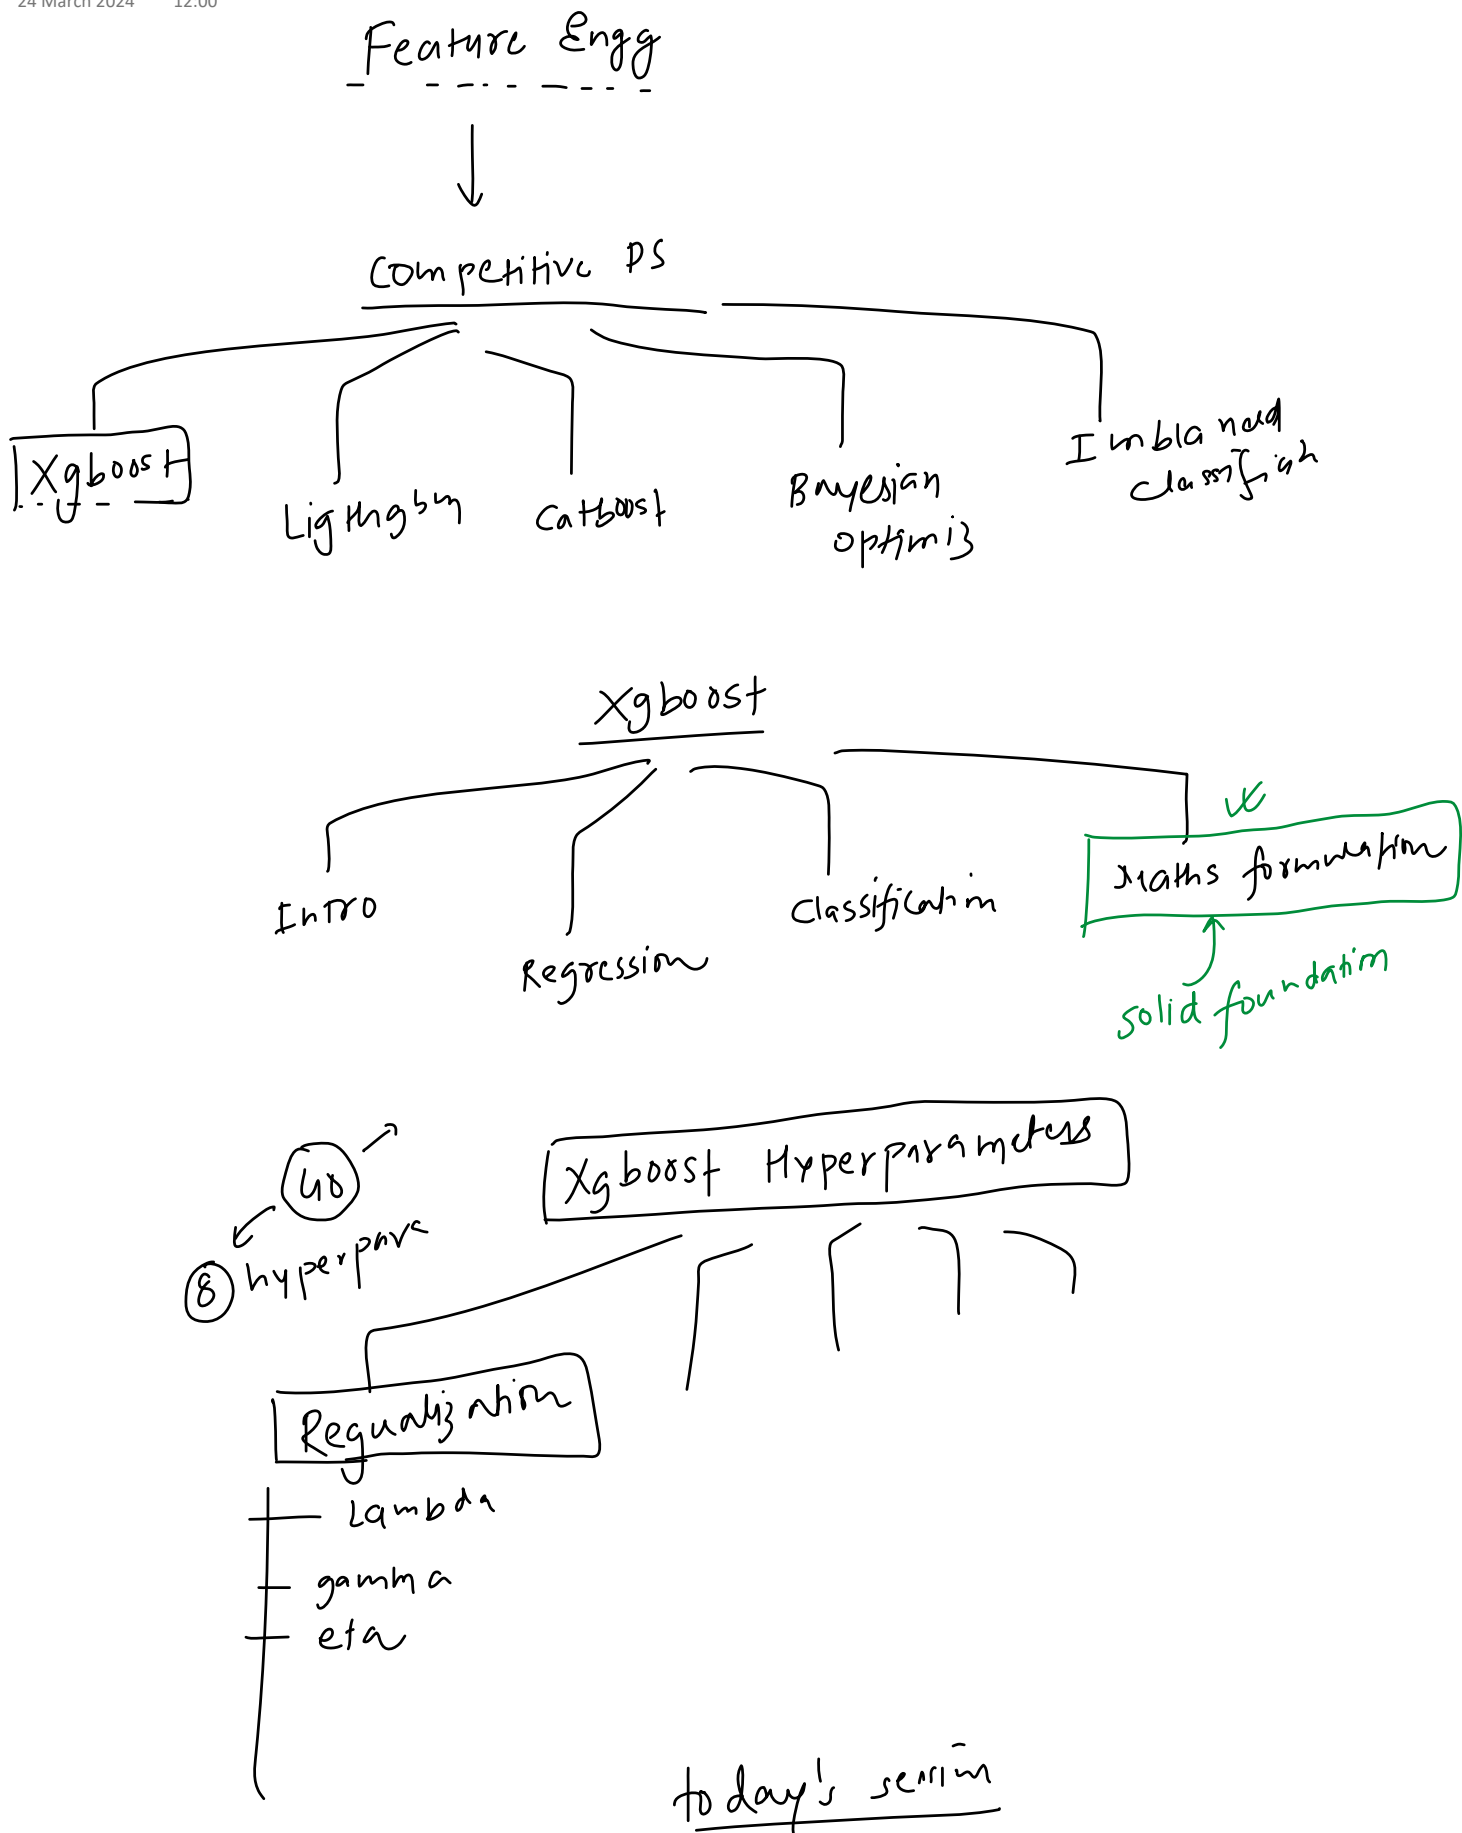 24 March 2024 12:00
Feature Engg
Competitive DS
Xgboost
Ligthgbm
Catboost
Bayesian
optimiz
Imblanced
classifican
Xgboost
Intro
Regression
Classification
Maths formulation
solid foundation
40
8 hyperpara
Xgboost Hyperparameters
Regualization
Lambda
gamma
eta
today's session